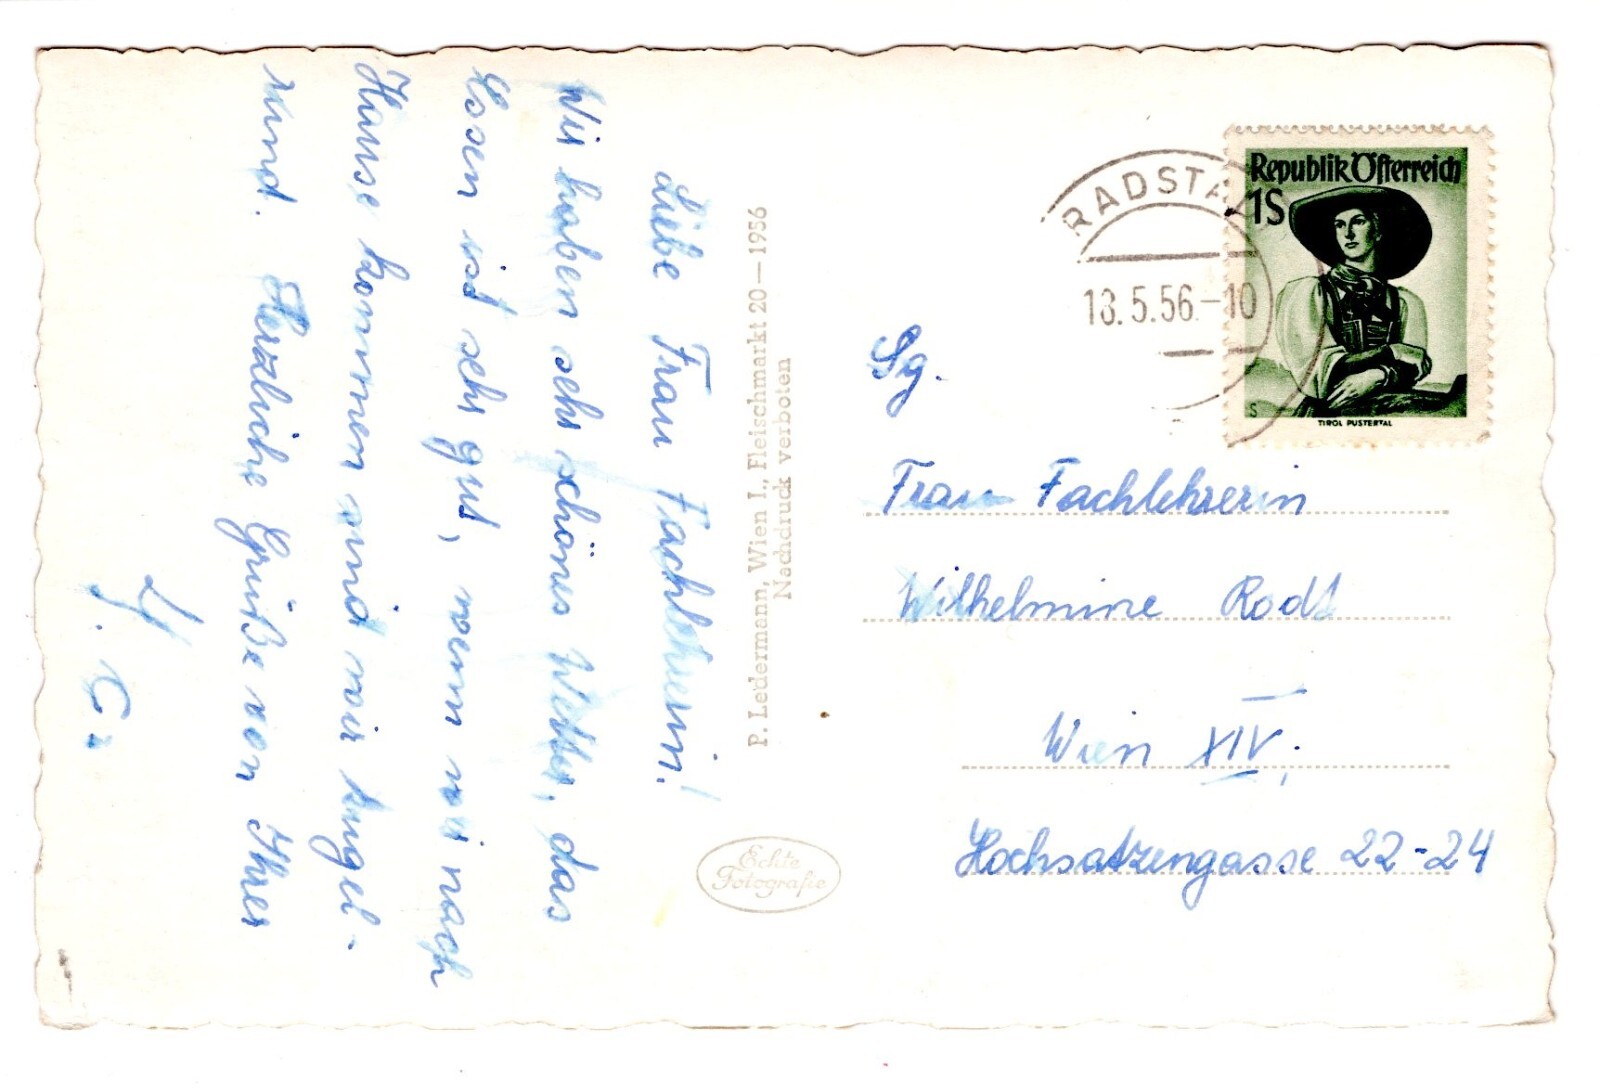 Liebe Frau Fachlehrerin!
Wir haben sehr schönes Wetter, das
Essen ist sehr gut, wenn wir nach
Hause kommen sind wir kugel-
rund. Herzliche Grüße von Ihrer
P. Ledermann, Wien I., Fleischmarkt 20—1956
Nachdruck verboten
Echte
Fotografie
RADSTA
18.5.56.-10
Republik Österreich
1S
TIROL PUSTERTAL
Sg.
Frau Fachlehrerin
Wilhelmine Rodt
Wien XIV,
Hochsatzengasse 22-24